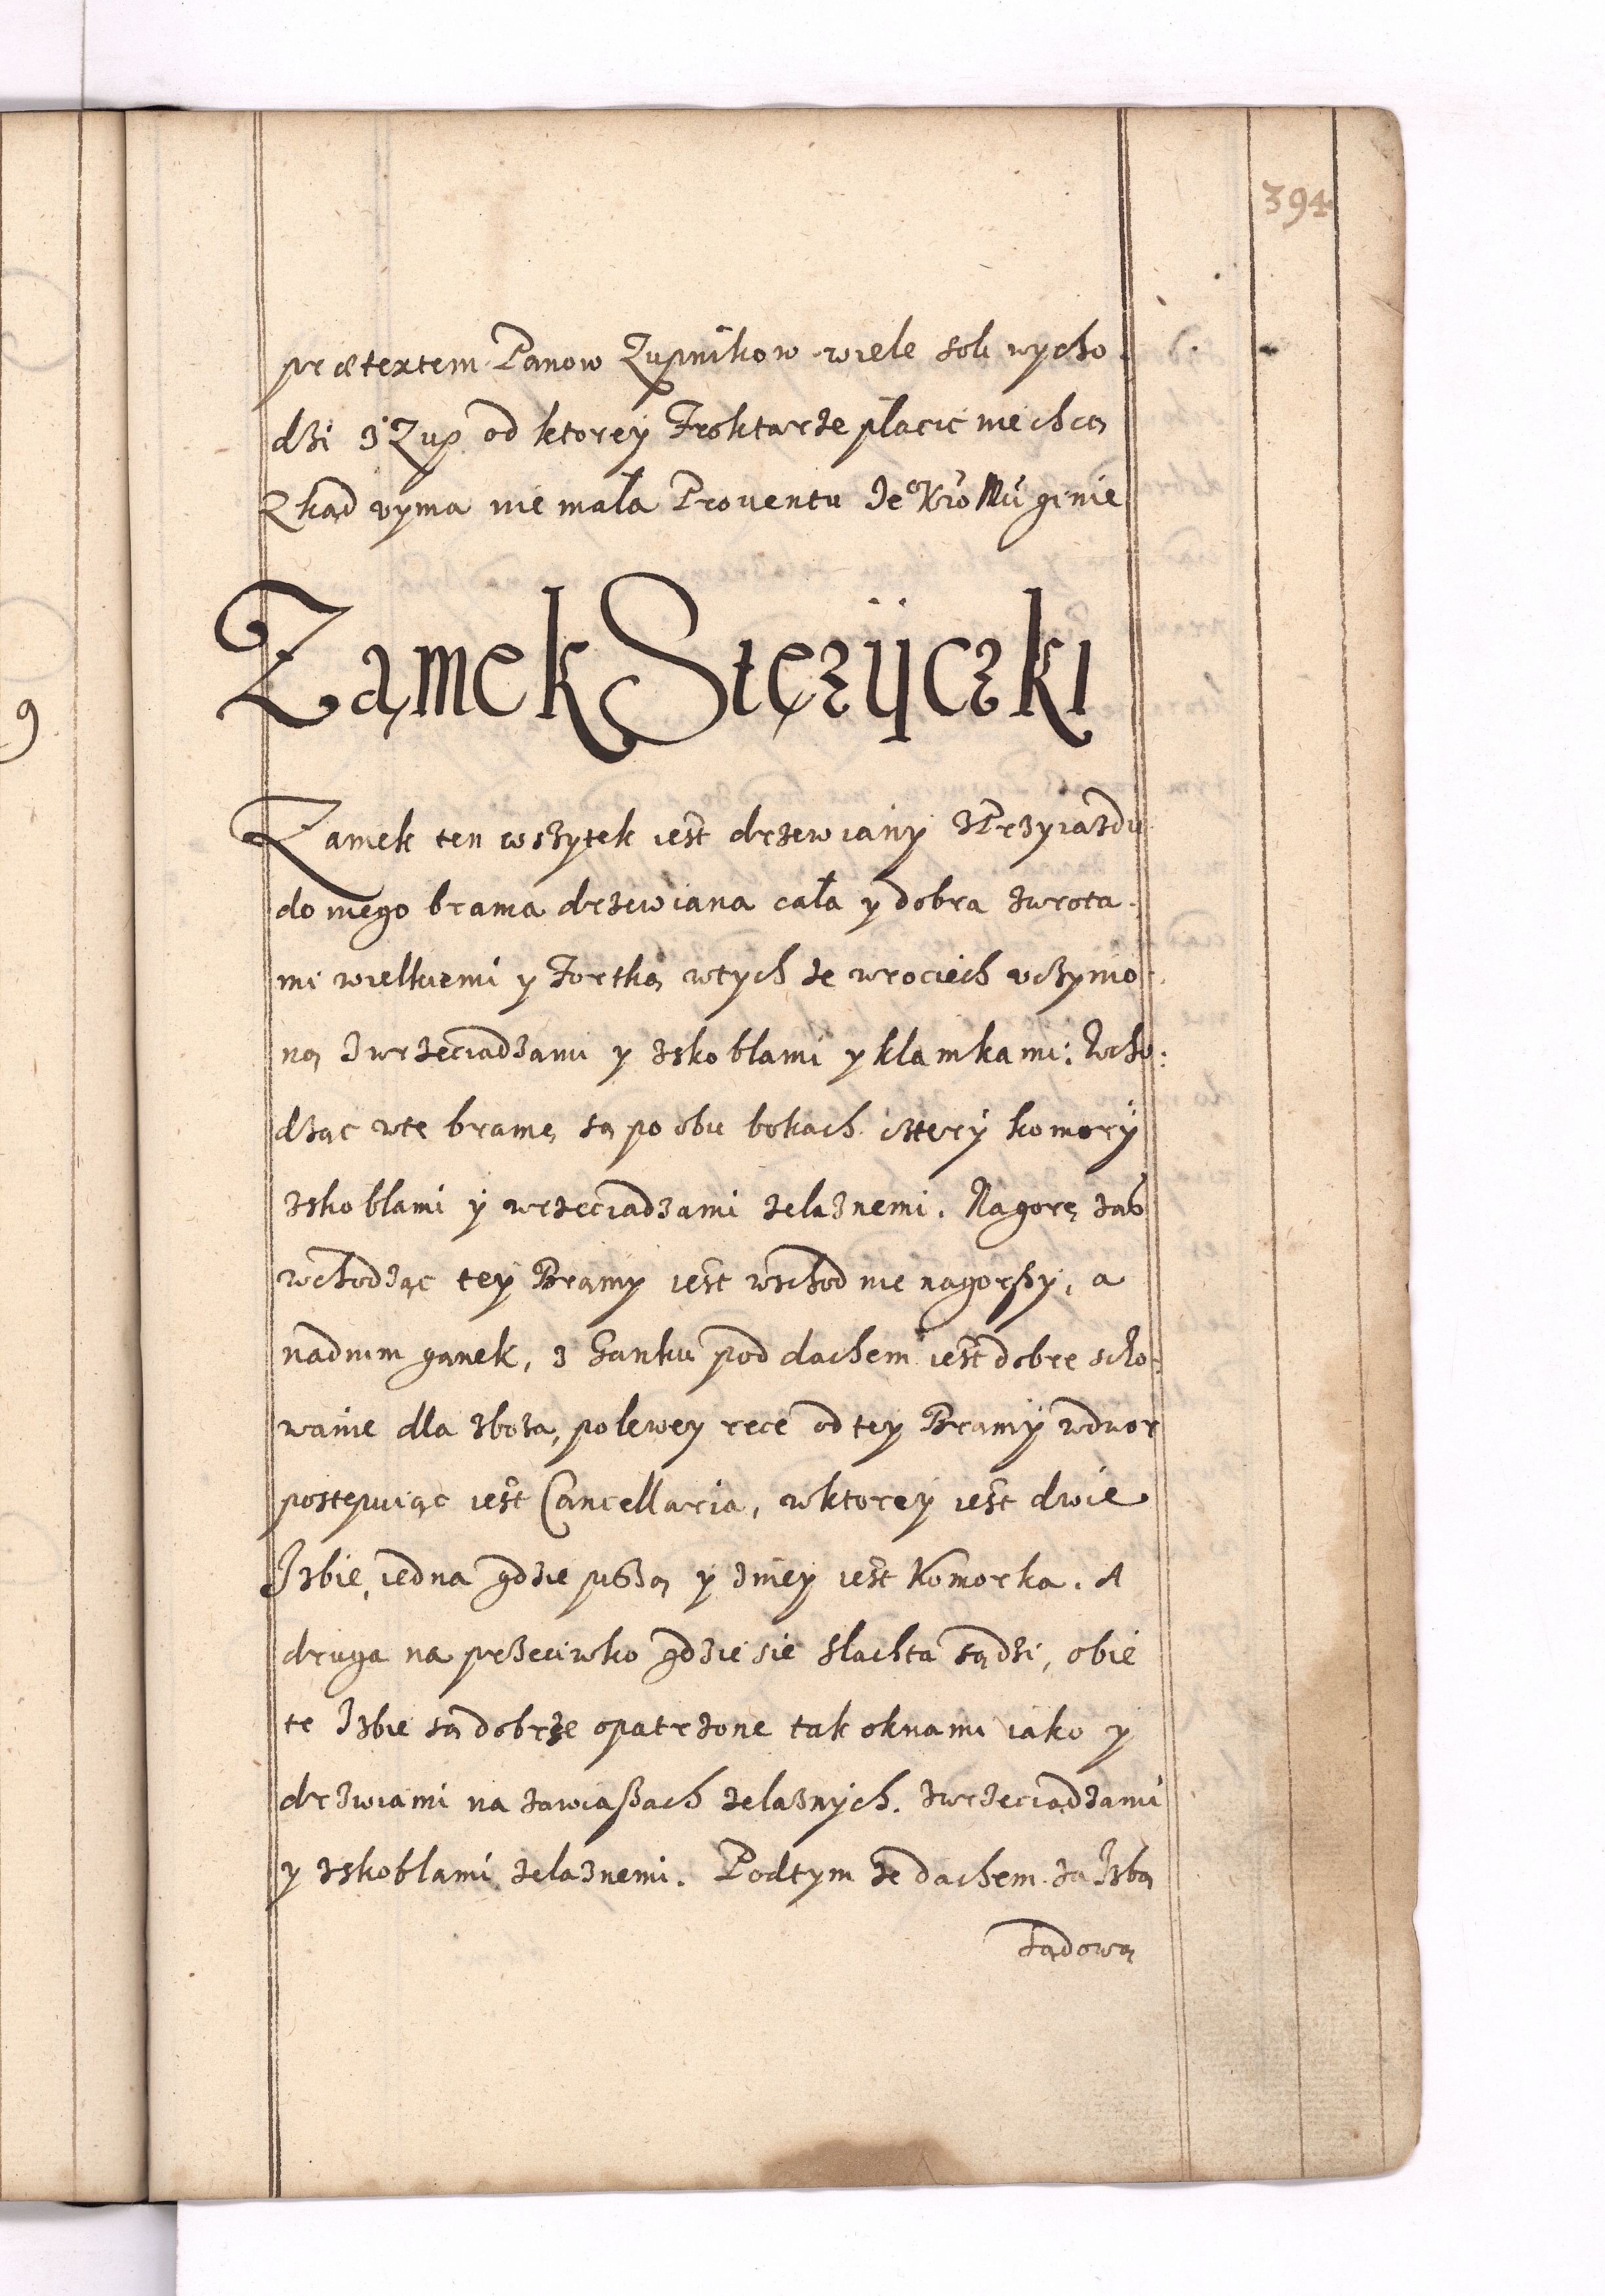 394
prætextem Panow Zupnikow wiele soli wycho
dzi z Zup od ktorey Froktarze płacic niechcą
Zkąd vyma nie mała Proventu Je° Kro Mći ginie
Zamek Stęzyczki
Zamek ten wszytek iest drzewiany z Przyiazdu
do niego brama drzewiana cała y dobra zwrota
mi wielkiemi y Fortką wtych ze wrociech vczynio
ną zwrzeciadzami y zskoblami y klamkami: Wcho:
dząc wte bramę są po obu bokach cztery komory
zskoblami y wrzeciadzami zelaznemi. Nagorę zaś
wchodząc tey Bramy iest wschod nie nagorszy, a
nadnim ganek, z Ganku pod dachem iest dobre scho
wanie dla zboza, polewey rece od tey Bramy wdwor
postępuiąc iest Cancellaria, wktorey iest dwie
Izbie, iedna gdzie piszą y zniey iest Komorka. A
druga na przeciwko gdzie sie szlachta sądzi, obie
te Izbie są dobrze opatrzone tak oknami iako y
drzwiami na zawiaßach zelaznych. zwrzeciądzami
y zskoblami zelaznemi. Podtym ze dachem za Izbą
Sądową